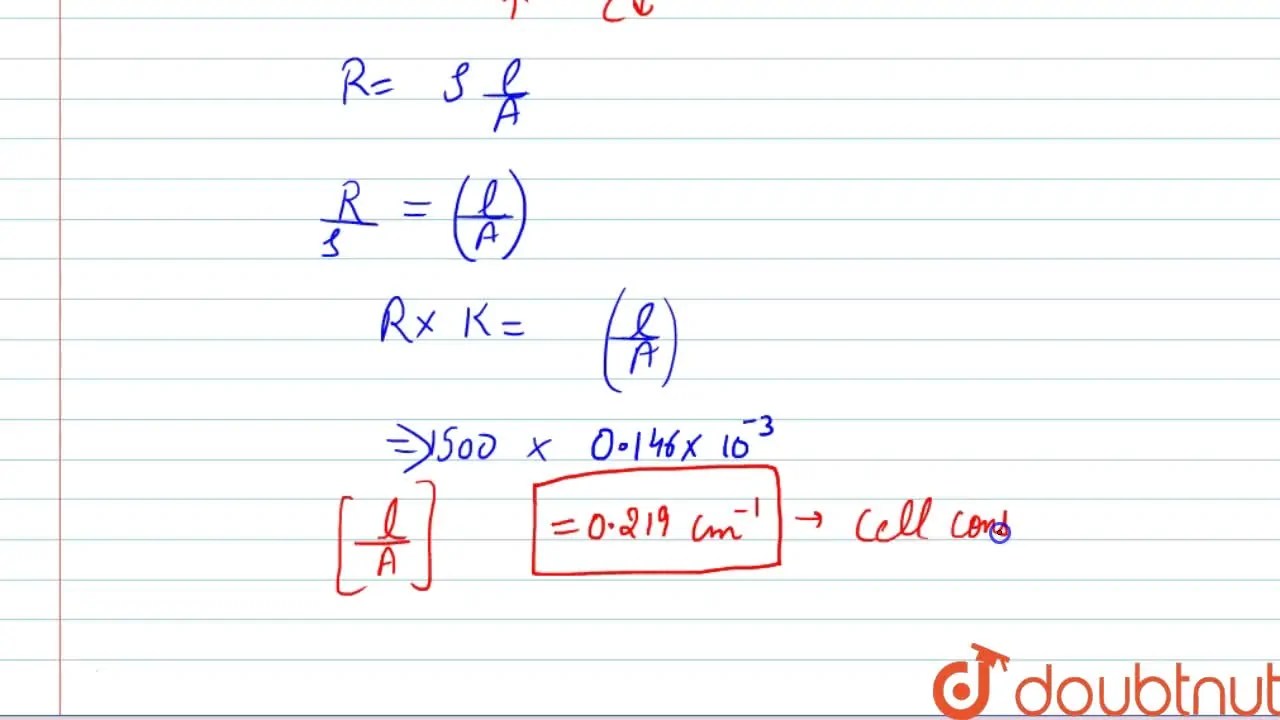 R = ρ l/A
R/ρ = (l/A)
R × K = (l/A)
⇒ 1500 × 0.146 × 10⁻³
[l/A] = 0.219 cm⁻¹ → Cell cons
doubtnut